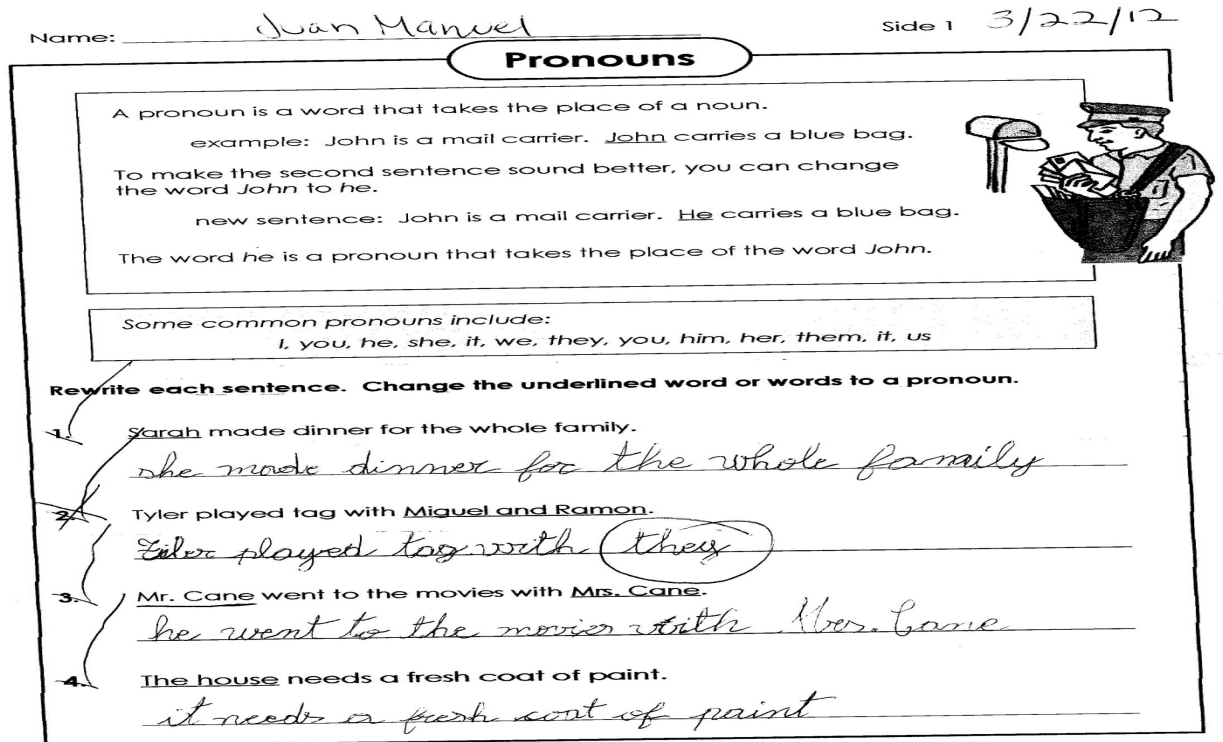 Name: Juan Manuel Side 1 3/22/12
Pronouns
A pronoun is a word that takes the place of a noun.
example: John is a mail carrier. John carries a blue bag.
To make the second sentence sound better, you can change
the word John to he.
new sentence: John is a mail carrier. He carries a blue bag.
The word he is a pronoun that takes the place of the word John.
Some common pronouns include:
I, you, he, she, it, we, they, you, him, her, them, it, us
Rewrite each sentence. Change the underlined word or words to a pronoun.
1. Sarah made dinner for the whole family.
she made dinner for the whole family
2. Tyler played tag with Miguel and Ramon.
played tag with they
3. Mr. Cane went to the movies with Mrs. Cane.
he went to the movies with Mrs. Cane
4. The house needs a fresh coat of paint.
it needs a fresh coat of paint